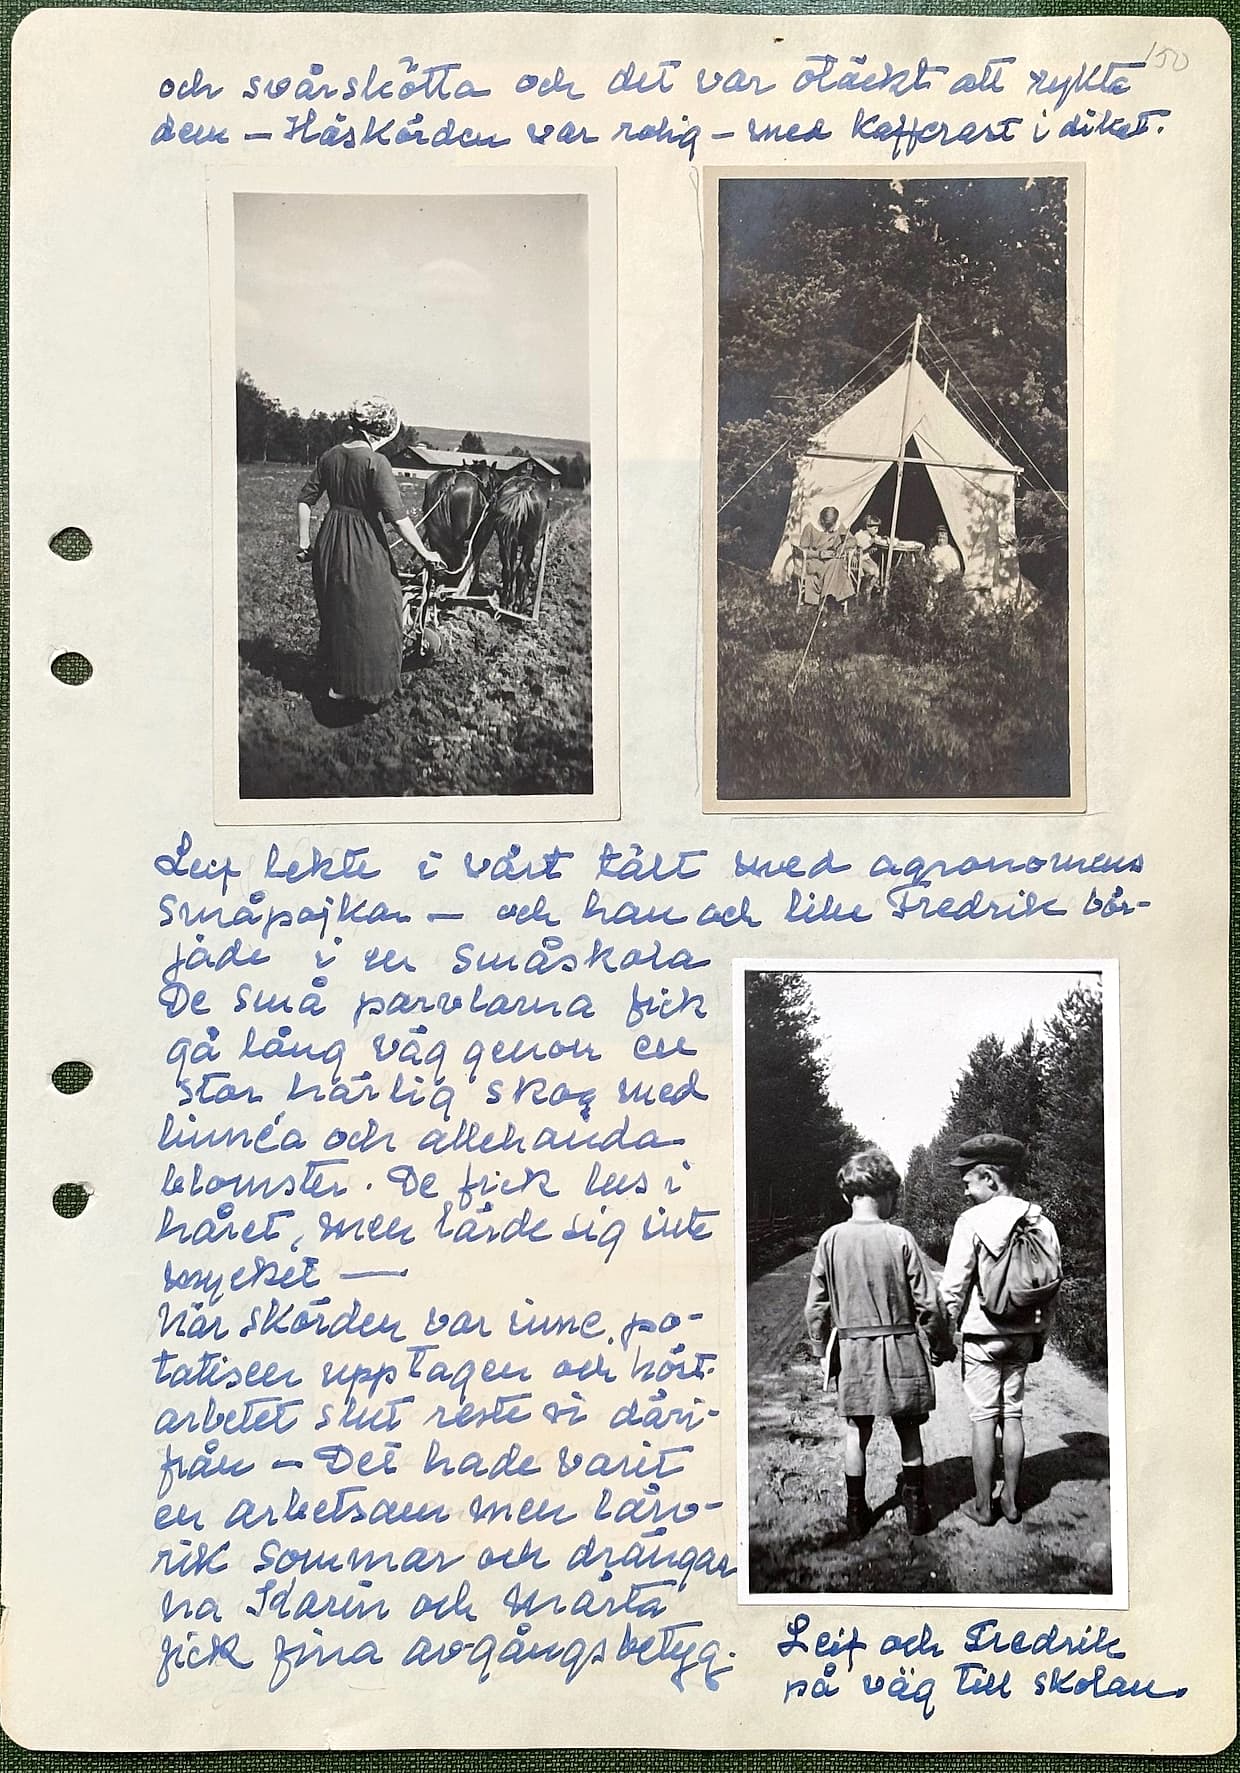 150
och svårskötta och det var otäckt att rykta
dem – Höskörden var rolig – med Kafferast i diket.
Leif lekte i vårt tält med agronomens
småpojkar – och han och lille Fredrik bör-
jade i en småskola
De små parvlarna fick
gå lång väg genom en
stor härlig skog med
linnéa och allehanda
blomster. De fick lus i
håret, men lärde sig inte
mycket —
När skörden var inne, po-
tatisen upptagen och höst-
arbetet slut reste vi däri-
från – Det hade varit
en arbetsam men läro-
rik sommar och drängar
na Karin och Märta
fick fina avgångsbetyg.
Leif och Fredrik
på väg till skolan.